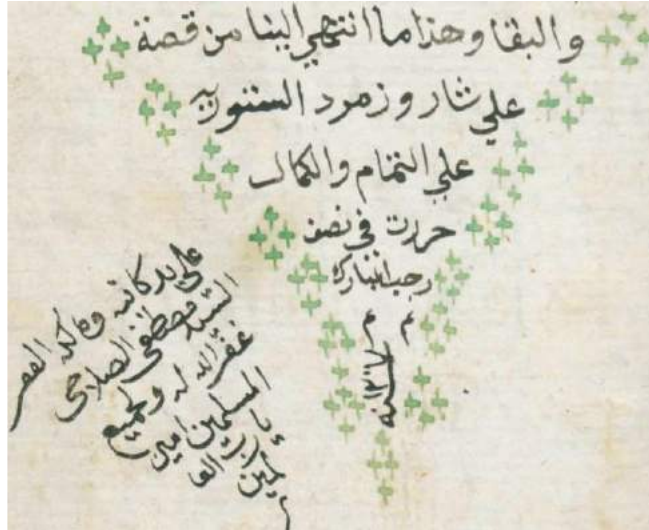 والبقا وهذا ما انتهي الينا من قصة
علي شار وزمرد الستوريه
علي التمام والكمال
حررت في نصف
رجب المبارك
م م
علي يد كاتبه ومالكه الفقير
السيد مصطفى الصلاحي
غفر الله له ولجميع
المسلمين
امين